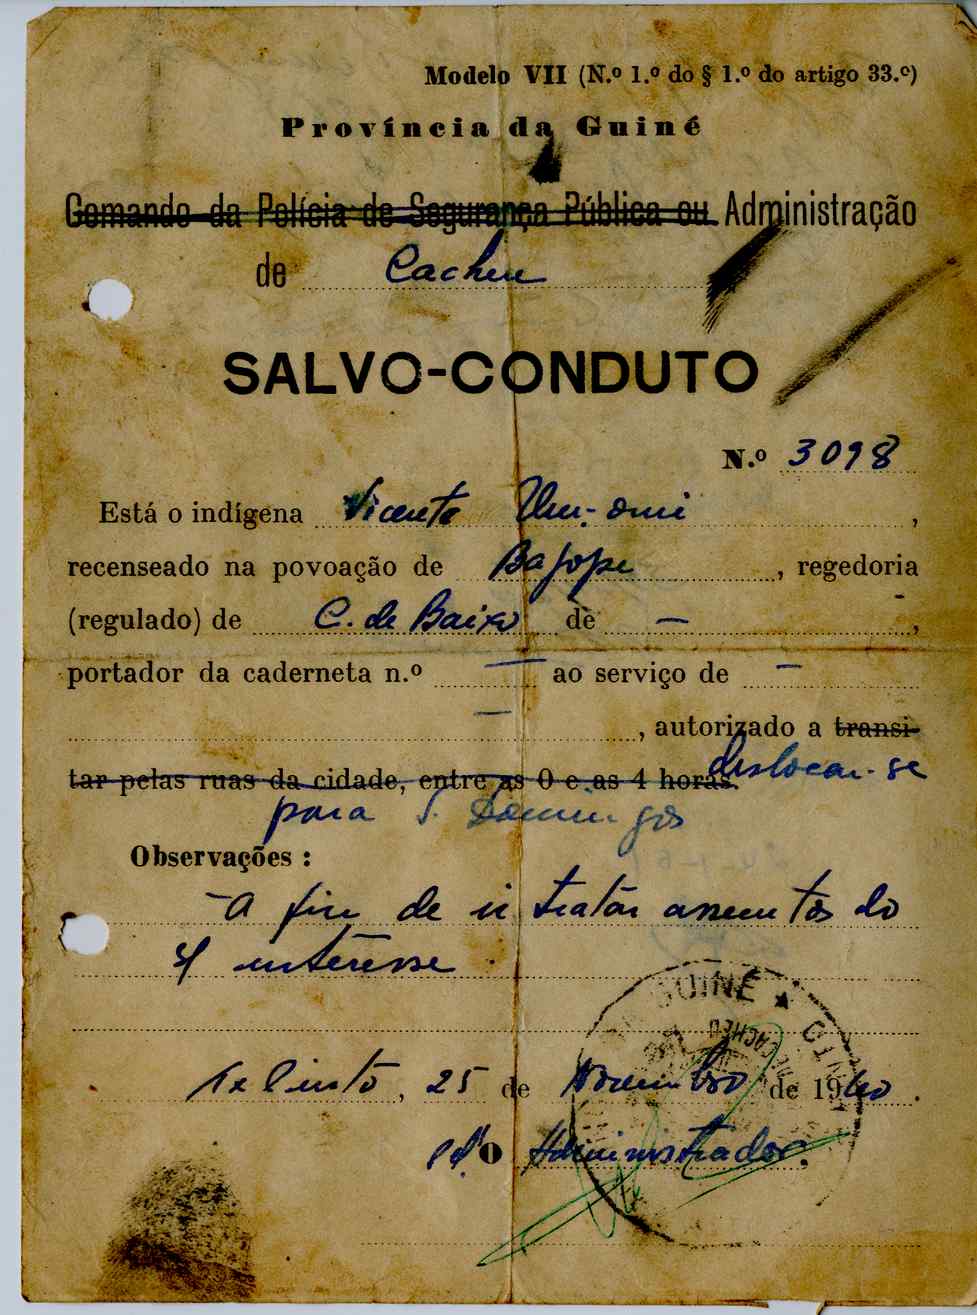 Modelo VII (N.º 1.º do § 1.º do artigo 33.º)
Província da Guiné
Comando da Polícia de Segurança Pública ou Administração
de Cacheu
SALVO-CONDUTO
N.º 3098
Está o indígena Vicente
recenseado na povoação de Bajope, regedoria
(regulado) de C. de Baixo de —,
portador da caderneta n.º — ao serviço de —
—, autorizado a transi-
tar pelas ruas da cidade, entre as 0 e as 4 horas. deslocar-se
para S. Domingos
Observações :
- A fim de ir tratar assuntos do
s/ interêsse.
GUINÉ ★
CACHEU
, 25 de Novembro de 1960.
O Administrador,